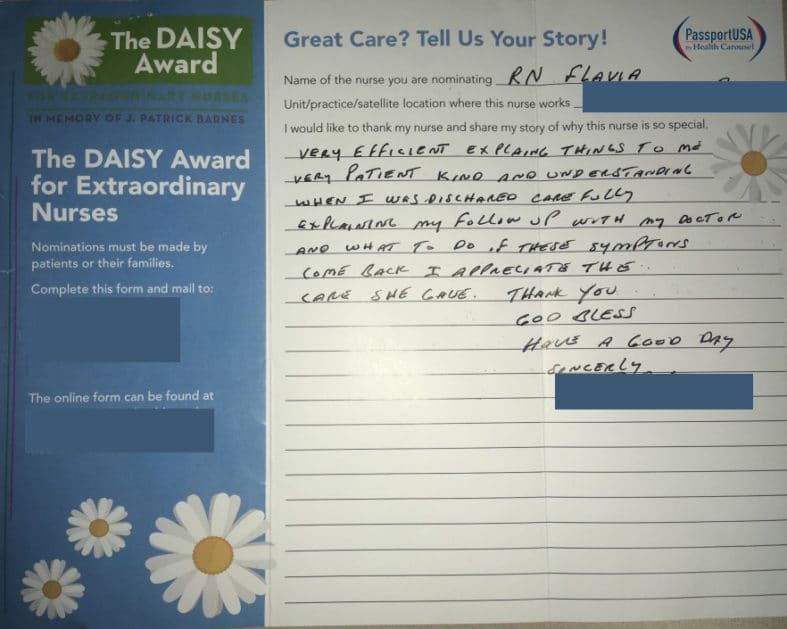 The DAISY
Award
FOR EXTRAORDINARY NURSES
IN MEMORY OF J. PATRICK BARNES
The DAISY Award
for Extraordinary
Nurses
Nominations must be made by
patients or their families.
Complete this form and mail to:
The online form can be found at
Great Care? Tell Us Your Story!
PassportUSA
by Health Carousel
Name of the nurse you are nominating RN FLAVIA
Unit/practice/satellite location where this nurse works
I would like to thank my nurse and share my story of why this nurse is so special.
VERY EFFICIENT EXPLAING THINGS TO ME
VERY PATIENT KIND AND UNDERSTANDING
WHEN I WAS DISCHARED CAREFULLY
EXPLAINING MY FOLLOW UP WITH MY DOCTOR
AND WHAT TO DO IF THESE SYMPTONS
COME BACK I APPRECIATE THE
CARE SHE GAVE. THANK YOU
GOD BLESS
HAVE A GOOD DAY
SINCERLY